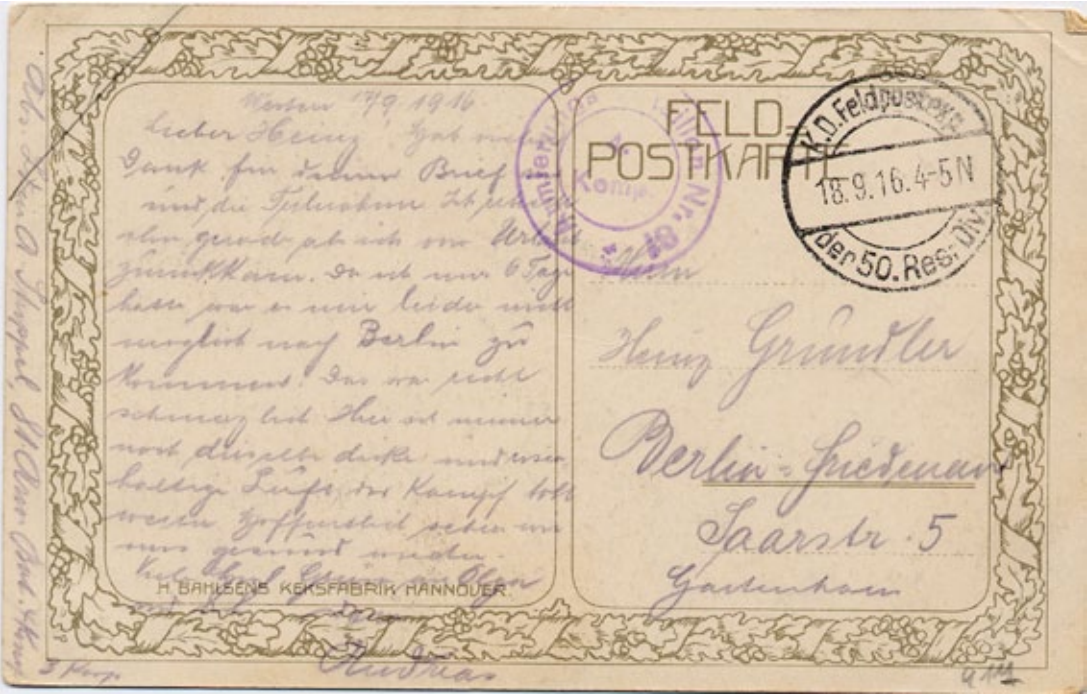 Westen 17/9 1916.
Lieber Heinz! Hab vielen
Dank für deinen Brief
und die Teilnahme. Ich
eben gerade als ich von Urlaub
zurückkam. Da ich nur 6 Tage
hatte war es mir leider nicht
möglich nach Berlin zu
kommen. Das war recht
schmerzlich. Hier ist immer
noch dieselbe dicke und eisen
haltige Luft, der Kampf tobt
weiter. Hoffentlich sehen wir
uns gesund wieder.
Viele Grüße
Andreas
H. BAHLSENS KEKSFABRIK HANNOVER.
FELD=
POSTKARTE
4.
Komp.
Nr. 81
K.D. Feldpostexp.
18.9.16. 4-5 N
der 50. Res. Div.
Herrn
Heinz Gründler
Berlin-Friedenau
Saarstr. 5
Gartenhaus
Abs.